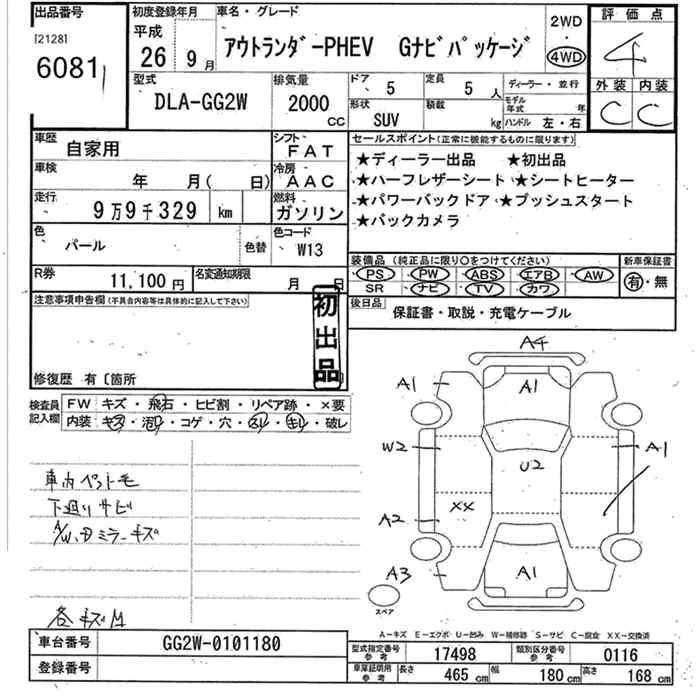 出品番号
[2128]
6081
初度登録年月
平成
26 9月
車名・グレード
アウトランダーPHEV Gナビパッケージ
2WD
・
4WD
評価点
4
外装 内装
C C
型式
DLA-GG2W
排気量
2000
cc
ドア
5
定員
5人
形状
SUV
積載
kg
ディーラー・並行
モデル年式 年
ハンドル 左・右
車歴
自家用
シフト
FAT
車検
年 月( 日)
冷房
AAC
走行
9万9千329 km
燃料
ガソリン
色
パール
色替
色コード
W13
R券
11,100円
名変通知期限
月 日
セールスポイント(正常に機能するものに限ります)
★ディーラー出品 ★初出品
★ハーフレザーシート ★シートヒーター
★パワーバックドア ★プッシュスタート
★バックカメラ
装備品(純正品に限り○をつけてください)
PS PW ABS エアB AW
SR ナビ TV カワ
新車保証書
有・無
後日品
保証書・取説・充電ケーブル
注意事項申告欄(不具合内容等は具体的に記入して下さい)
初出品
修復歴 有〔箇所
検査員記入欄
FW キズ・飛石・ヒビ割・リペア跡・×要
内装 キズ・汚レ・コゲ・穴・スレ・キレ・破レ
車内ペットモ
下廻りサビ
A/W、Dミラーキズ
各キズM
A4
A1
A1
W2
A1
U2
XX
A2
A3
A1
スペア
A-キズ E-エクボ U-凹み W-補修跡 S-サビ C-腐食 XX-交換済
車台番号
GG2W-0101180
登録番号
型式指定番号
参考
17498
類別区分番号
参考
0116
車庫証明用
参考
長さ
465 cm
幅
180 cm
高さ
168 cm